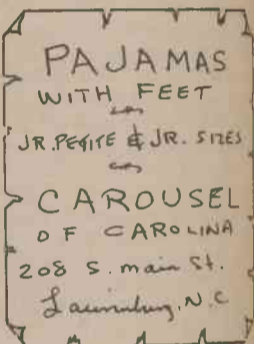 PAJAMAS
WITH FEET
JR. PETITE & JR. SIZES
CAROUSEL
OF CAROLINA
208 S. main St.
Laurinburg, N.C